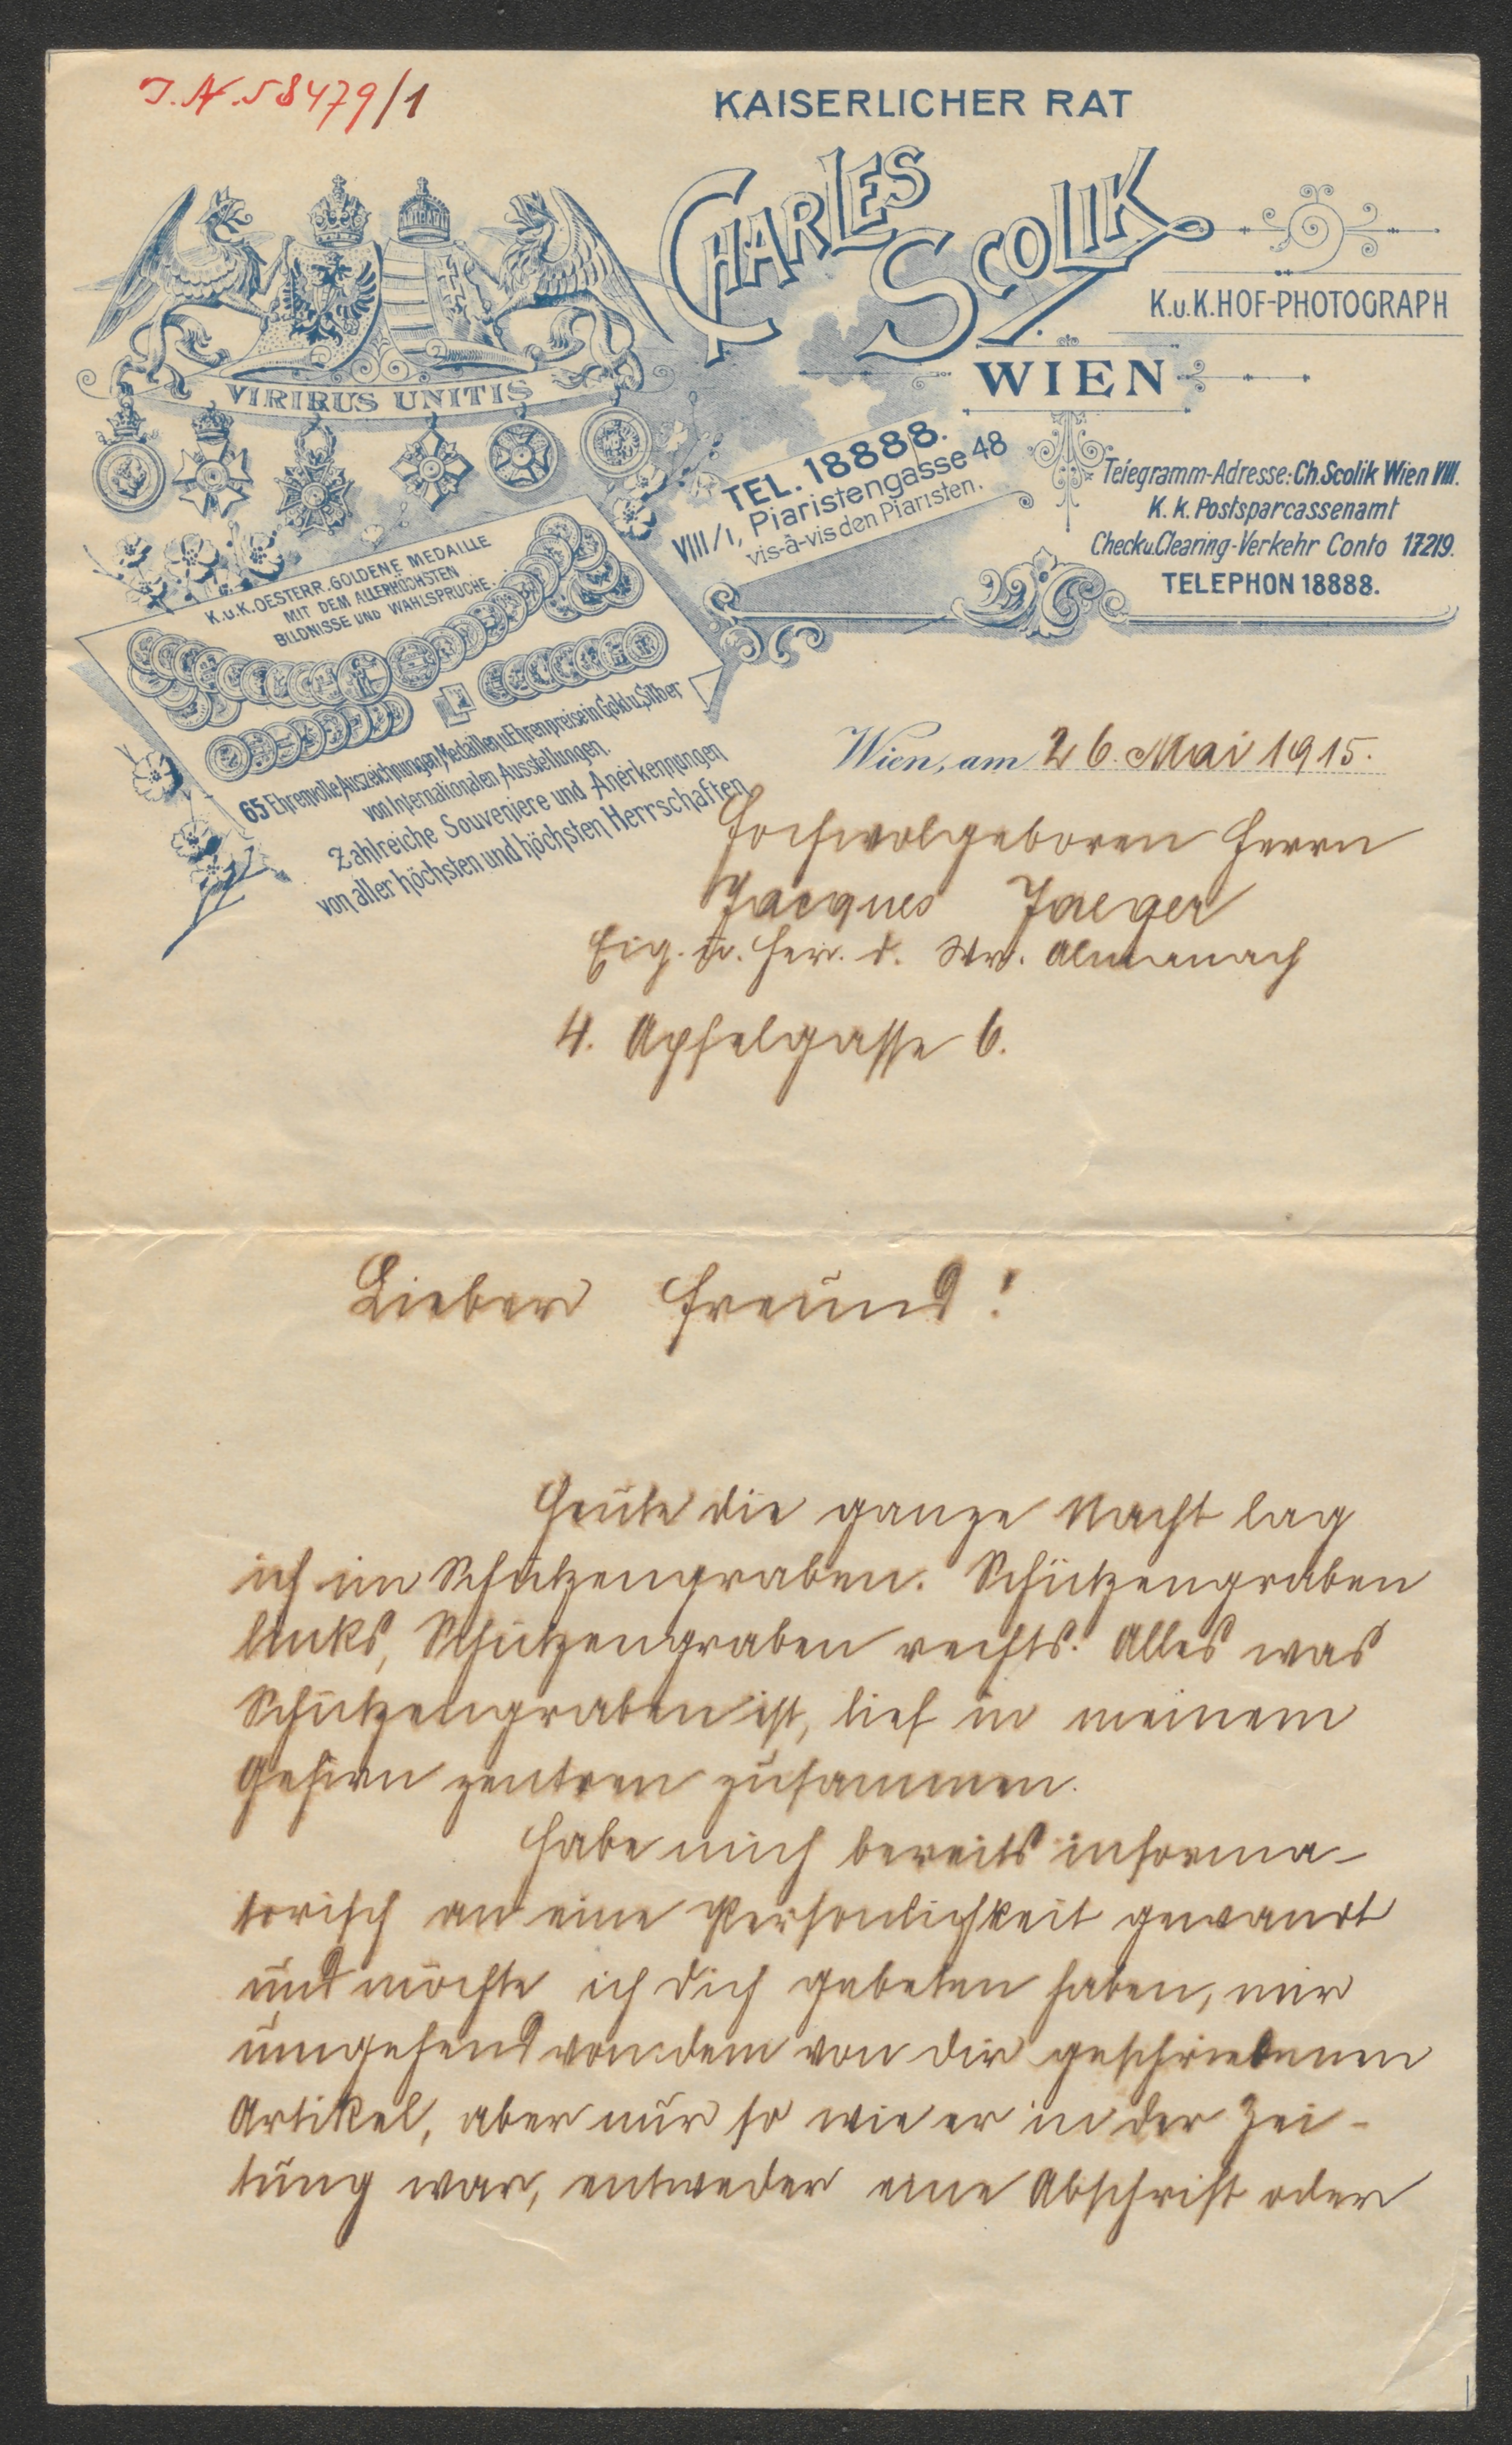 J.N.58479/1
KAISERLICHER RAT
CHARLES SCOLIK
K.u.K.HOF-PHOTOGRAPH
WIEN
VIRIBUS UNITIS
TEL. 18888.
VIII/1, Piaristengasse 48
vis-à-vis den Piaristen.
Telegramm-Adresse: Ch.Scolik Wien VIII.
K. k. Postsparcassenamt
Check u.Clearing-Verkehr Conto 17219.
TELEPHON 18888.
K.u.K.OESTERR.GOLDENE MEDAILLE
MIT DEM ALLERHÖCHSTEN
BILDNISSE UND WAHLSPRUCHE.
65 Ehrenvolle Auszeichnungen Medaillen u.Ehrenpreise in Gold u.Silber
von Internationalen Ausstellungen.
Zahlreiche Souveniere und Anerkennungen
von aller höchsten und höchsten Herrschaften
Wien, am 26. Mai 1915.
Hochwolgeboren Herrn
Jacques Jaeger
Eig. u. Her. d. Wr. Almanach
4. Apfelgasse 6.
Lieber Freund!
Heute die ganze Nacht lag
ich im Schützengraben. Schützengraben
links, Schützengraben rechts. Alles was
Schützengraben ist, lief in meinem
Gehirn zentren zusammen.
Habe mich bereits informa-
torisch an eine Persönlichkeit gewandt
und möchte ich dich gebeten haben, mir
umgehend von dem von dir geschriebenen
Artikel, aber nur so wie er in der Zei-
tung war, entweder eine Abschrift oder